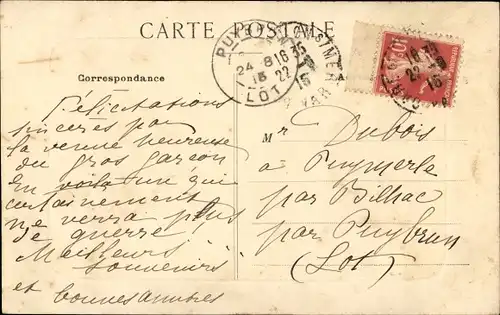 CARTE POSTALE
Correspondance
Félicitations
sincères par
la venue heureuse
du gros garçon
en voilà un qui
certainement
ne verra plus
de guerre
Meilleurs
souvenirs
et bonnes amitiés
Mr Dubois
à Puymerle
par Bilhac
par Puybrun
(Lot)
24 - 8
15
LOT
16 35
22
15
VAR
10